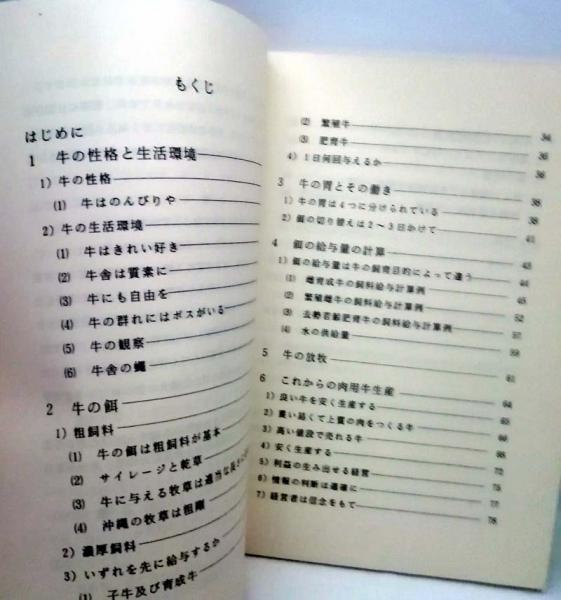 もくじ
はじめに
1 牛の性格と生活環境
1) 牛の性格
(1) 牛はのんびりや
2) 牛の生活環境
(1) 牛はきれい好き
(2) 牛舎は質素に
(3) 牛にも自由を
(4) 牛の群れにはボスがいる
(5) 牛の観察
(6) 牛舎の蠅
2 牛の餌
1) 粗飼料
(1) 牛の餌は粗飼料が基本
(2) サイレージと乾草
(3) 牛に与える牧草は適当な長さに
(4) 沖縄の牧草は粗剛
2) 濃厚飼料
3) いずれを先に給与するか
(1) 子牛及び育成牛
(2) 繁殖牛 34
(3) 肥育牛 36
4) 1日何回与えるか 36
3 牛の胃とその働き 38
1) 牛の胃は4つに分けられている 38
2) 餌の切り替えは2〜3日かけて 41
4 餌の給与量の計算 43
1) 餌の給与量は牛の飼育目的によって違う 44
(1) 雌育成牛の飼料給与計算例
(2) 繁殖雌牛の飼料給与計算例 52
(3) 去勢若齢肥育牛の飼料給与計算例 57
(4) 水の供給量 59
5 牛の放牧 61
6 これからの肉用牛生産 64
1) 良い牛を安く生産する 65
2) 飼い易くて上質の肉をつくる牛 66
3) 高い値段で売れる牛 68
4) 安く生産する 72
5) 利益の生み出せる経営 75
6) 情報の判断は適確に
7) 経営者は信念をもて 78